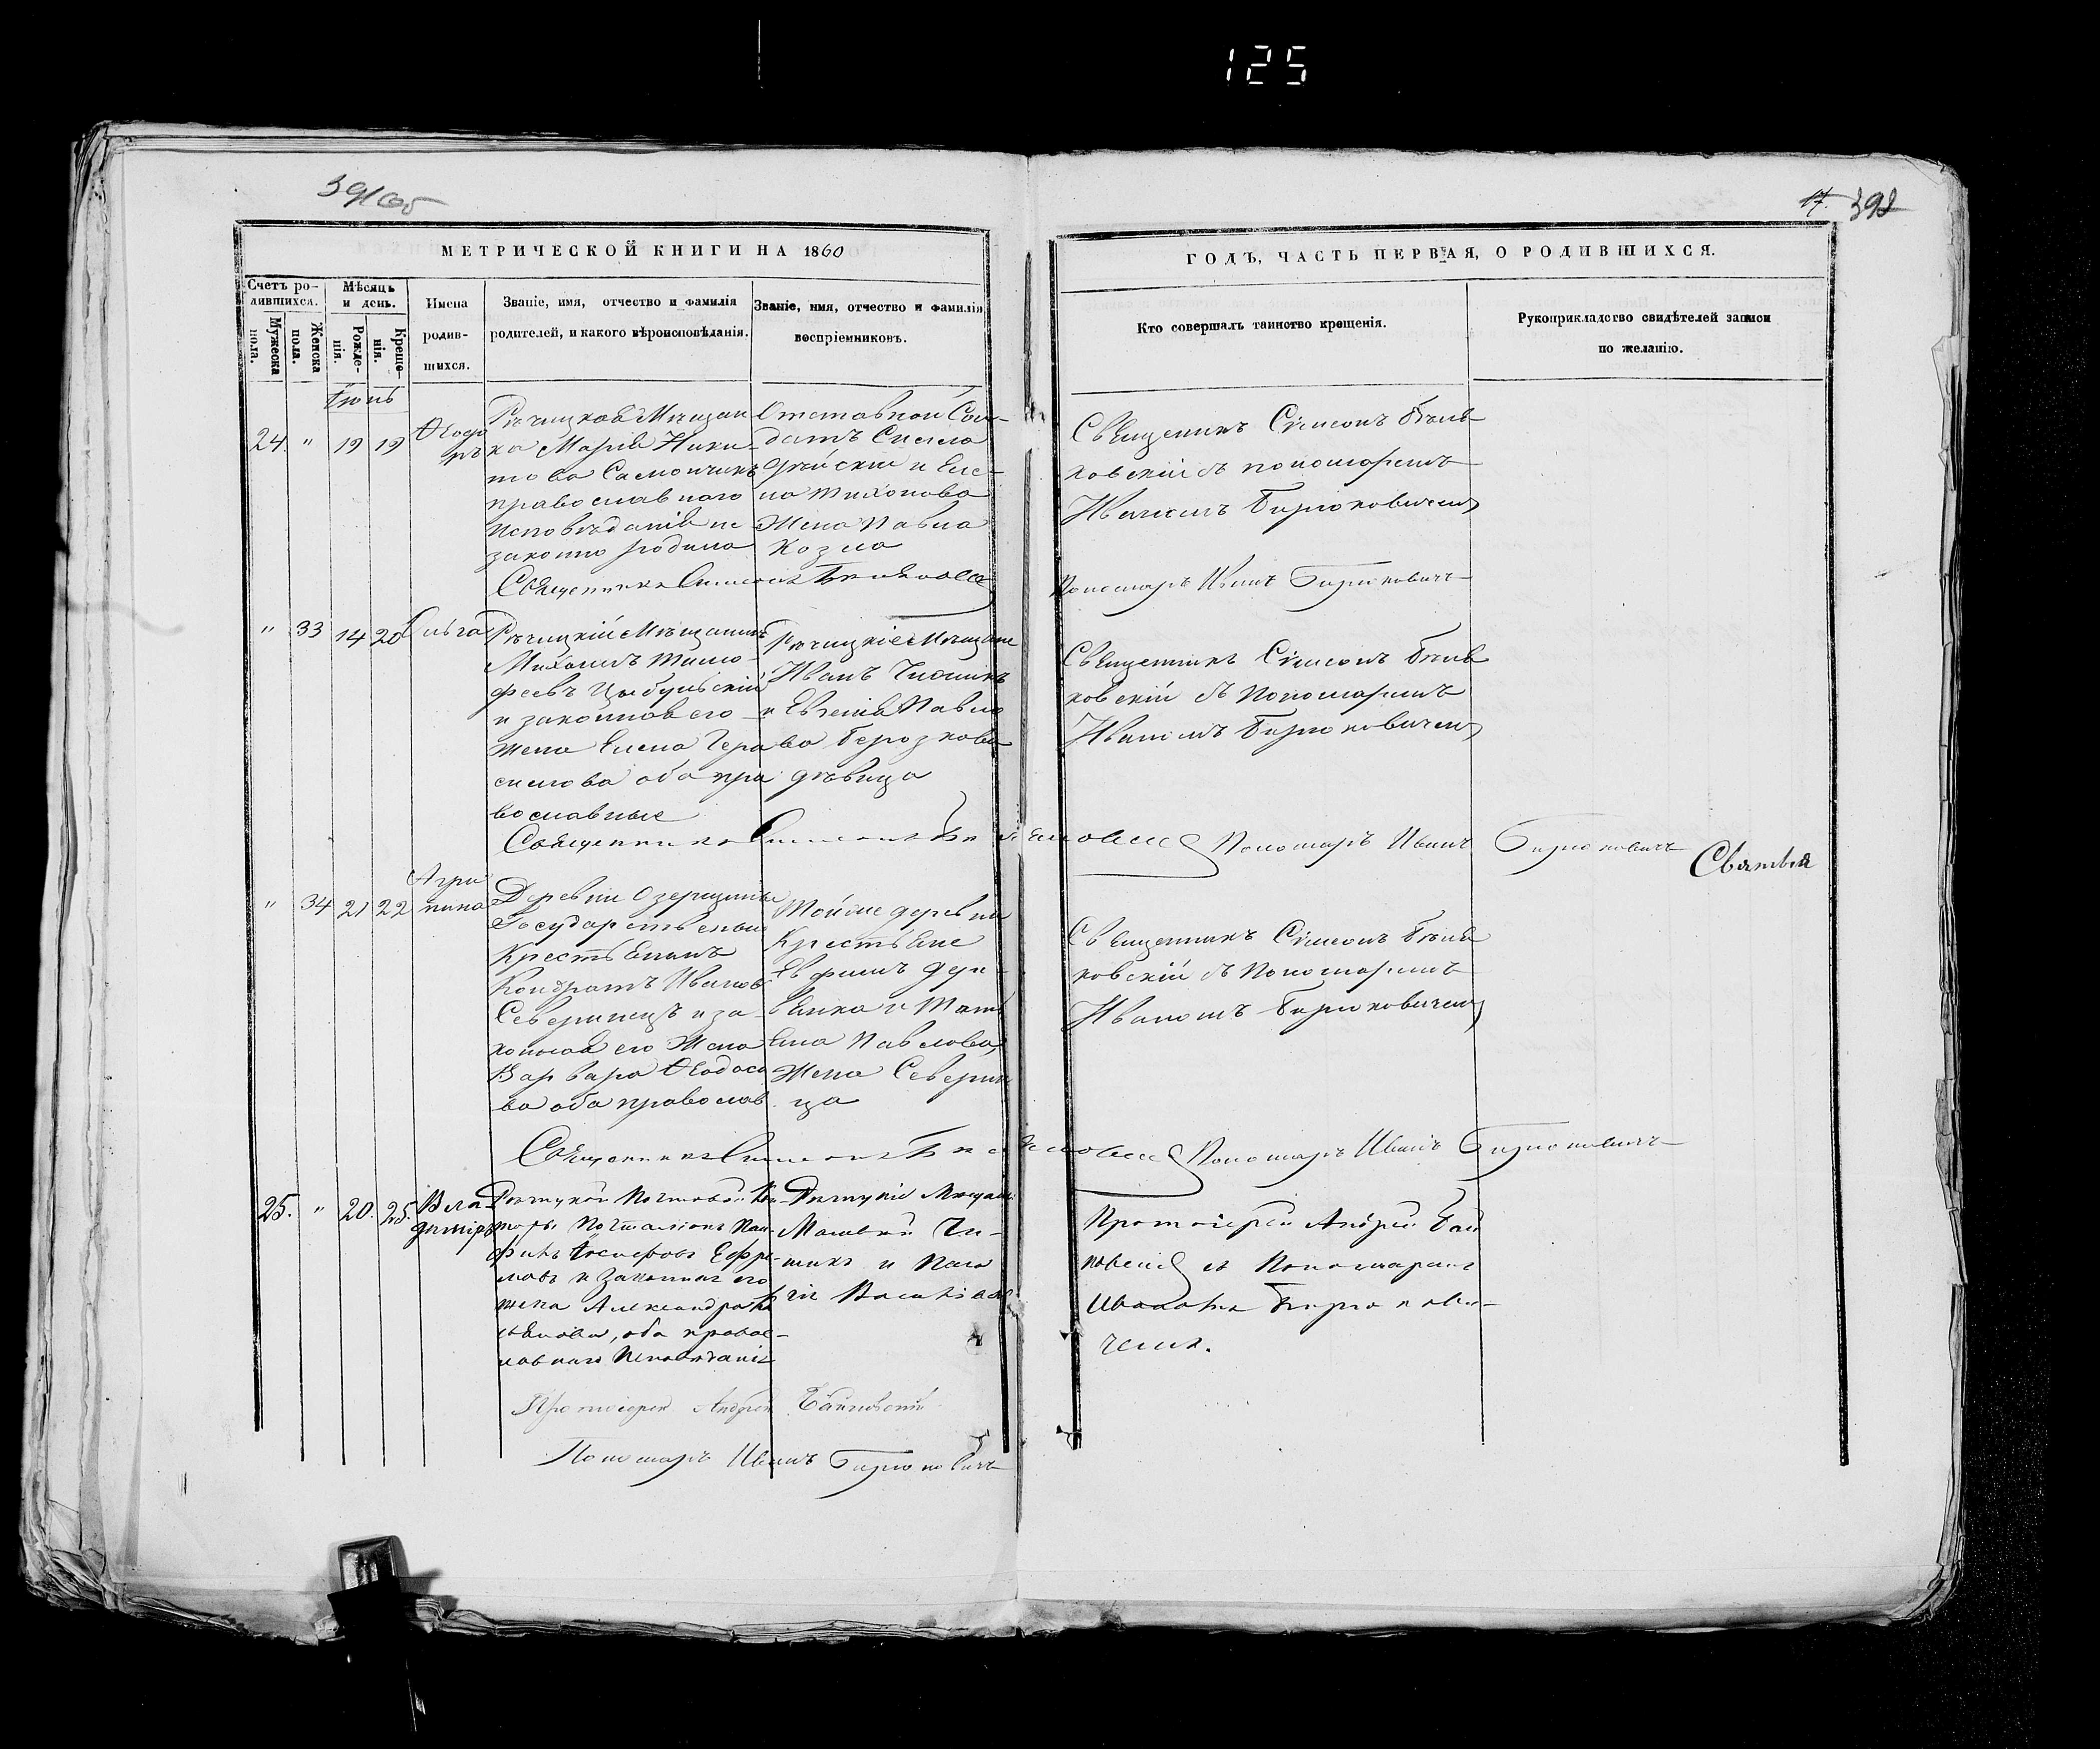 125
391об
17. 392
МЕТРИЧЕСКОЙ КНИГИ НА 1860
ГОДЪ, ЧАСТЬ ПЕРВАЯ, О РОДИВШИХСЯ.
Счетъ родившихся.
Мужеска пола.
Женска пола.
Мѣсяцъ и день.
Рожденія.
Крещенія.
Имена родившихся.
Званіе, имя, отчество и фамилія
родителей, и какого вѣроисповѣданія.
Званіе, имя, отчество и фамилія
воспріемниковъ.
Кто совершалъ таинство крещенія.
Рукоприкладство свидѣтелей записи
по желанію.
Іюнь
24. " 19 19
Ѳеодо
ръ
Рѣчицкая Мѣщан
ка Марія Ники-
това
православнаго
исповѣданія не
законно родила
Отставной Сол-
датъ
и Еле-
на Тихонова
Жена Павла
Козла
Священникъ Симеонъ
ховскій съ пономаремъ
Иваномъ Бирюковичемъ
Священникъ Симеонъ
Пономарь Иванъ Бирюковичъ
" 33 14 20
Ольга
Рѣчицкій Мѣщанинъ
Михаилъ Тимо-
феевъ Цыбульскій
и законная его
жена Елена Гера
симова оба пра
вославные
Рѣчицкіе Мѣщане
Иванъ
и Евгенія Павло
ва Берозкова
дѣвица
Священникъ Симеонъ
ховскій съ Пономаремъ
Иваномъ Бирюковичемъ
Священникъ Симеонъ
Пономарь Иванъ Бирюковичъ
Святыя
" 34 21 22
Агри
пина
Деревни Озерщины
Государственный
Крестьянинъ
Кондратъ Ивановъ
Северинецъ и за
конная его Жена
Варвара Ѳеодосо
ва оба православ
Той же деревни
Крестьяне
Евфимъ Дере
вянко и Тать
яна Павлова,
Жена Северин
ца
Священникъ Симеонъ
ковскій съ Пономаремъ
Иваномъ Бирюковичемъ
Священникъ Симеонъ
Пономарь Иванъ Бирюковичъ
25. " 20. 25.
Вла
диміръ
Рѣчицкой Почтовой Кон
торы Почталіонъ
Іосифовъ Ефре-
мовъ и Законная его
жена Александра
оба правос-
лавнаго Исповѣданія
Рѣчицкіе Мѣщане
Матвей
и
Протоіерей Андрей
съ Пономаремъ
Иваномъ Бирюкови-
чемъ.
Протоіерей Андрей
Пономарь Иванъ Бирюковичъ